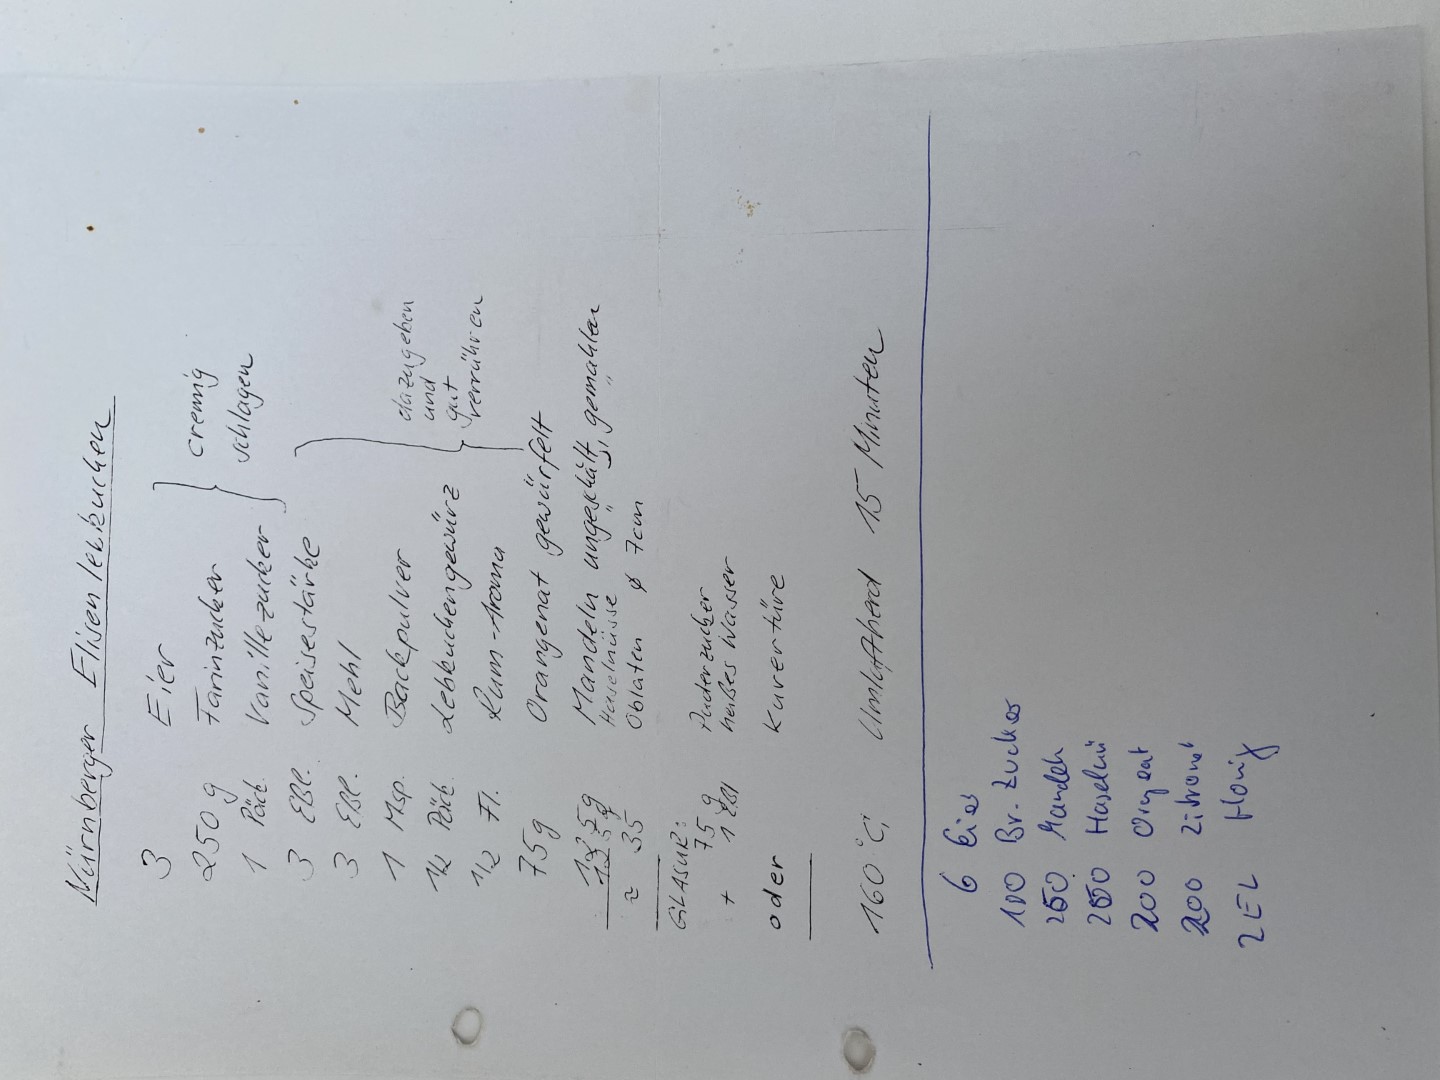 Nürnberger Elisenlebkuchen
3 Eier
250 g Farinzucker
1 Päck. Vanillezucker
cremig
schlagen
3 Eßl. Speisestärke
3 Eßl. Mehl
1 Msp. Backpulver
1/2 Päck. Lebkuchengewürz
1/2 Fl. Rum-Aroma
dazugeben
und
gut
verrühren
75g Orangenat gewürfelt
125g Mandeln ungeschält, gemahlen
125g Haselnüsse " " "
≈ 35 Oblaten ø 7cm
GLASUR:
75 g Puderzucker
+ 1 Eßl heißes Wasser
oder Kuvertüre
160°C, Umluftherd 15 Minuten
6 Eier
100 Br. Zucker
250 Mandeln
200 Orgeat
200 Zitronat
2 EL Honig